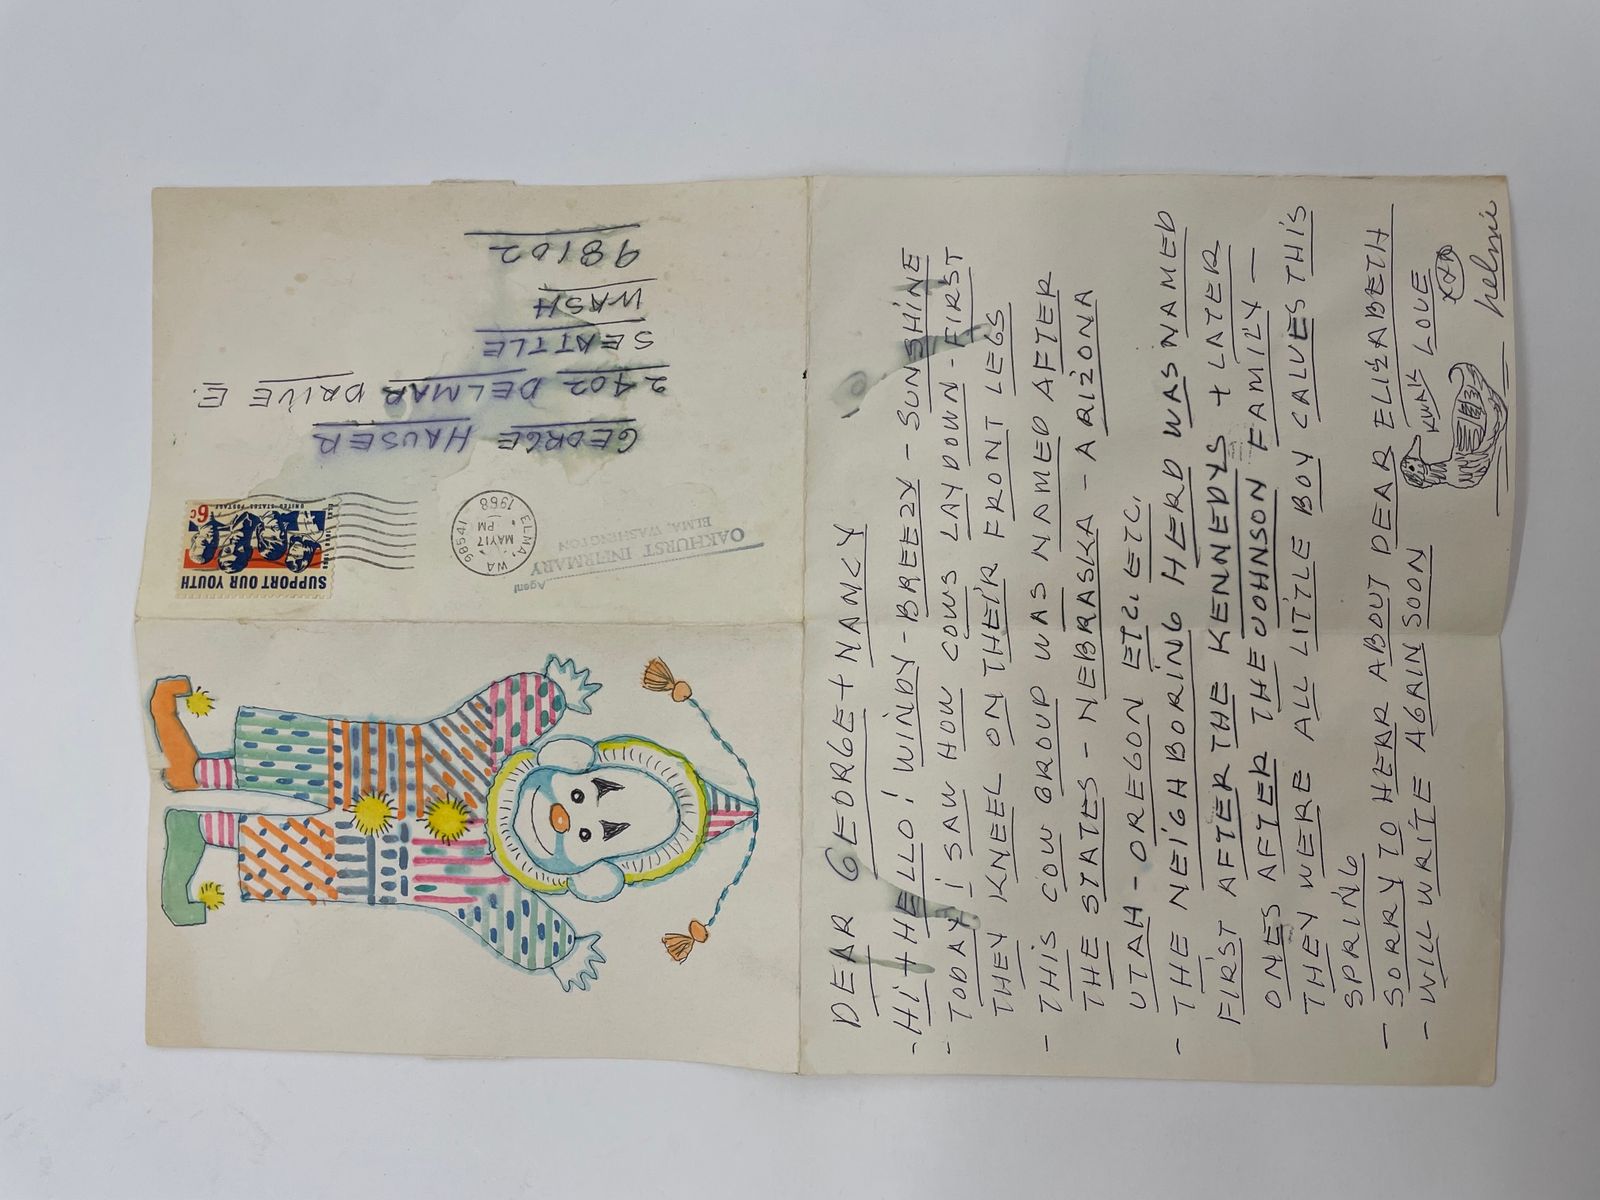 SUPPORT OUR YOUTH
UNITED STATES POSTAGE
6c
ELMA, WA
MAY 17
PM
1968
98541
OAKHURST INFIRMARY
ELMA, WASHINGTON
Agent
GEORGE HAUSER
2402 DELMAR DRIVE E.
SEATTLE
WASH
98102
DEAR GEORGE + NANCY
- HI + HELLO! WINDY - BREEZY - SUNSHINE
- TODAY I SAW HOW COWS LAY DOWN - FIRST
THEY KNEEL ON THEIR FRONT LEGS
- THIS COW GROUP WAS NAMED AFTER
THE STATES - NEBRASKA - ARIZONA
UTAH - OREGON ETC. ETC.
- THE NEIGHBORING HERD WAS NAMED
FIRST AFTER THE KENNEDYS + LATER
ONES AFTER THE JOHNSON FAMILY -
THEY WERE ALL LITTLE BOY CALVES THIS
SPRING
- SORRY TO HEAR ABOUT DEAR ELIZABETH
- WILL WRITE AGAIN SOON
KWAK LOVE
helmi